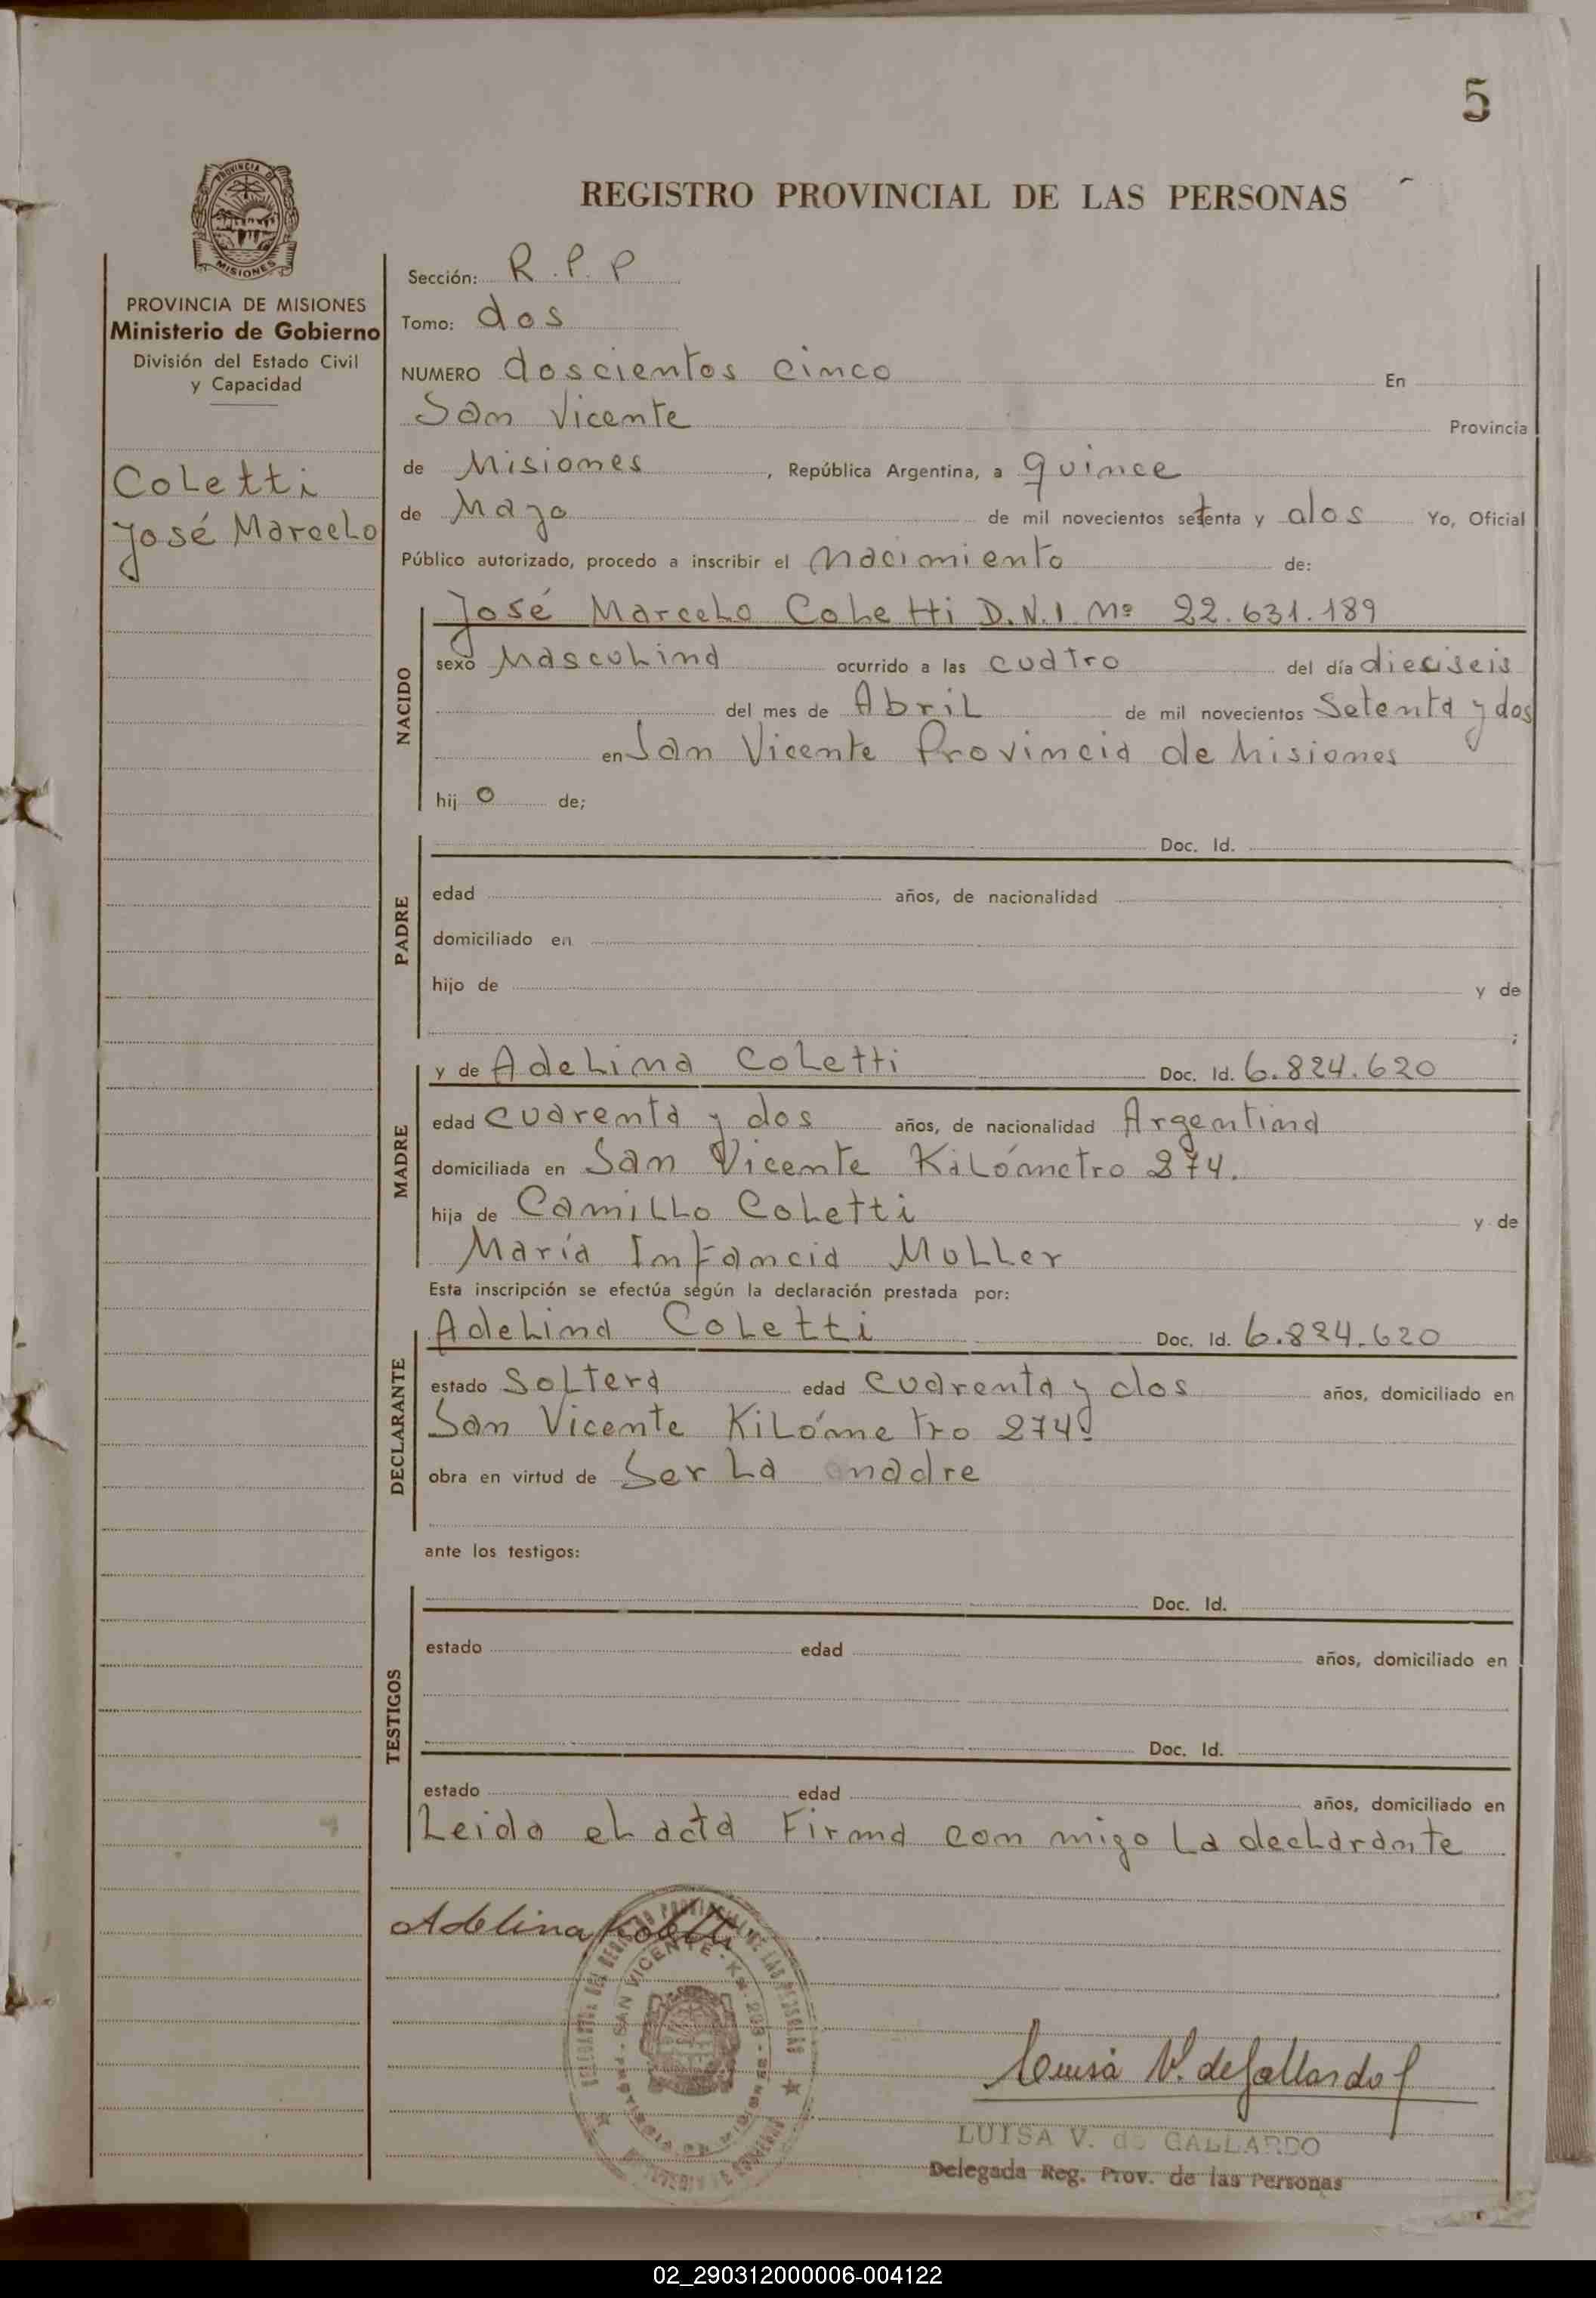 5
REGISTRO PROVINCIAL DE LAS PERSONAS
PROVINCIA DE
MISIONES
PROVINCIA DE MISIONES
Ministerio de Gobierno
División del Estado Civil
y Capacidad
Coletti
José Marcelo
Sección: R.P.P
Tomo: dos
NUMERO doscientos cinco En
San Vicente Provincia
de Misiones, República Argentina, a quince
de Mayo de mil novecientos setenta y dos Yo, Oficial
Público autorizado, procedo a inscribir el nacimiento de:
José Marcelo Coletti D.N.I. Nº 22.631.189
NACIDO
sexo Masculino ocurrido a las cuatro del día dieciseis
del mes de Abril de mil novecientos Setenta y dos
en San Vicente Provincia de Misiones
hij o de;
PADRE
Doc. Id.
edad años, de nacionalidad
domiciliado en
hijo de y de
;
MADRE
y de Adelina Coletti Doc. Id. 6.824.620
edad cuarenta y dos años, de nacionalidad Argentina
domiciliada en San Vicente Kilómetro 274.
hija de Camillo Coletti y de
María Infancia Muller
Esta inscripción se efectúa según la declaración prestada por:
DECLARANTE
Adelina Coletti Doc. Id. 6.824.620
estado Soltera edad cuarenta y dos años, domiciliado en
San Vicente Kilómetro 274.
obra en virtud de Ser La madre
ante los testigos:
TESTIGOS
Doc. Id.
estado edad años, domiciliado en
Doc. Id.
estado edad años, domiciliado en
Leido el acta Firma con migo La declarante
Adelina Koletti
SAN VICENTE
Luisa V. de Gallardo
LUISA V. de GALLARDO
Delegada Reg. Prov. de las Personas
02_290312000006-004122